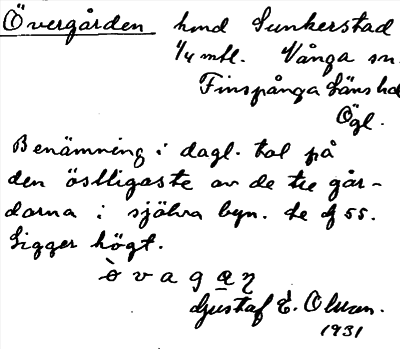 Övergården hmd Sunkerstad
1/4 mtl. Vånga sn.
Finspånga läns hd
Ögl.
Benämning i dagl. tal på
den östligaste av de tre går-
darna i själva byn. Le g 55.
Ligger högt.
ò v a g a̲ ŋ
Gustaf E. Olsson.
1931